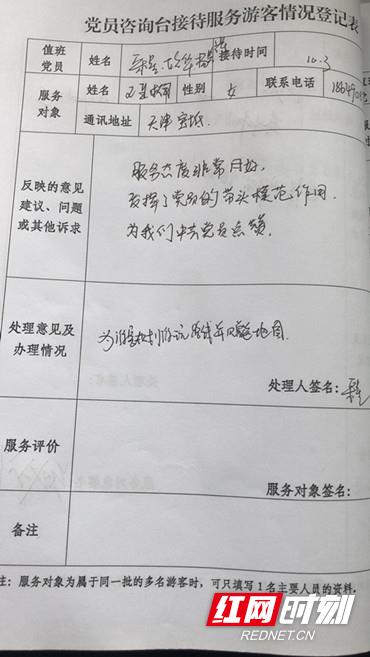 党员咨询台接待服务游客情况登记表
值班党员 姓名 接待时间 10.3
服务对象 姓名 性别 女 联系电话
通讯地址 天津宝坻
反映的意见建议、问题或其他诉求
服务态度非常好,
发挥了党员的带头模范作用
为我们中共党员点赞。
处理意见及办理情况
为游客规划游玩路线并 地图
处理人签名:
服务评价
服务对象签名:
备注
注:服务对象为属于同一批的多名游客时,可只填写1名主要人员的资料。
红网时刻
REDNET.CN